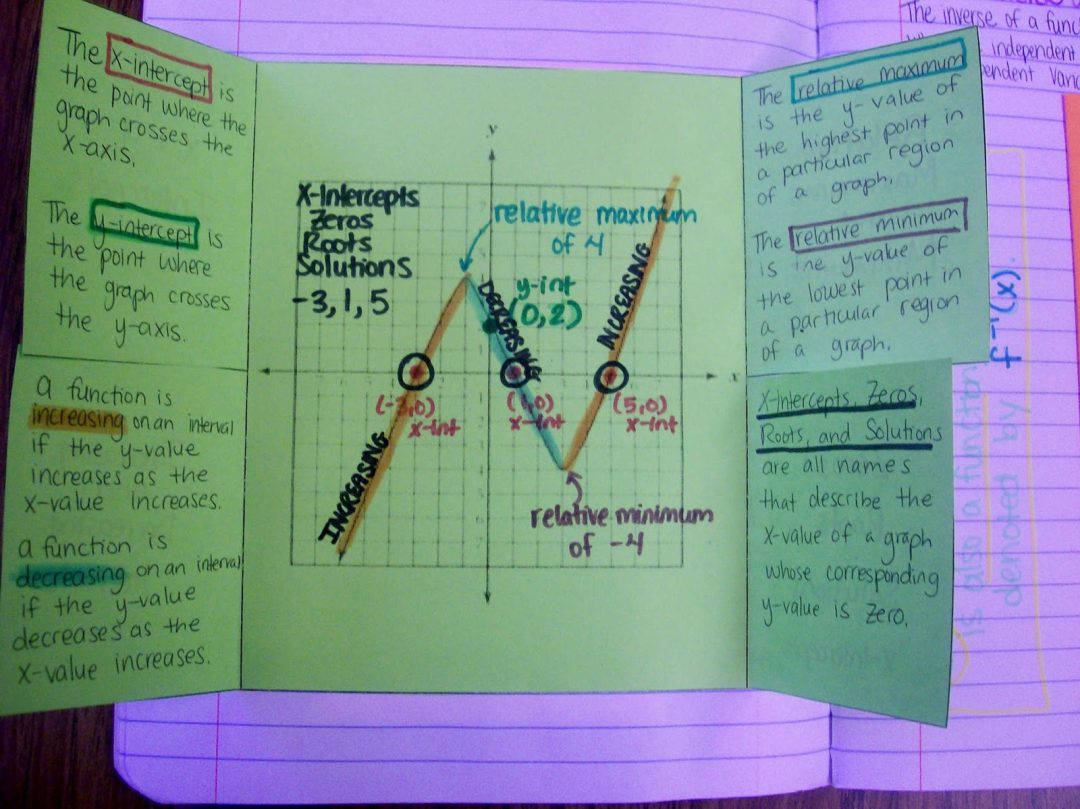 The x-intercept is
the point where the
graph crosses the
x-axis.
The y-intercept is
the point where
the graph crosses
the y-axis.
a function is
increasing on an interval
if the y-value
increases as the
x-value increases.
a function is
decreasing on an interval
if the y-value
decreases as the
x-value increases.
y
X-Intercepts
Zeros
Roots
Solutions
-3, 1, 5
relative maximum
of 4
y-int
(0,2)
INCREASING
DECREASING
INCREASING
x
(-3,0)
x-int
(1,0)
x-int
(5,0)
x-int
relative minimum
of -4
The relative maximum
is the y-value of
the highest point in
a particular region
of a graph.
The relative minimum
is the y-value of
the lowest point in
a particular region
of a graph.
X-Intercepts, Zeros,
Roots, and Solutions
are all names
that describe the
x-value of a graph
whose corresponding
y-value is zero.
The inverse of a func
independent
pendent Varia
f⁻¹(x).
is also a function
denoted by